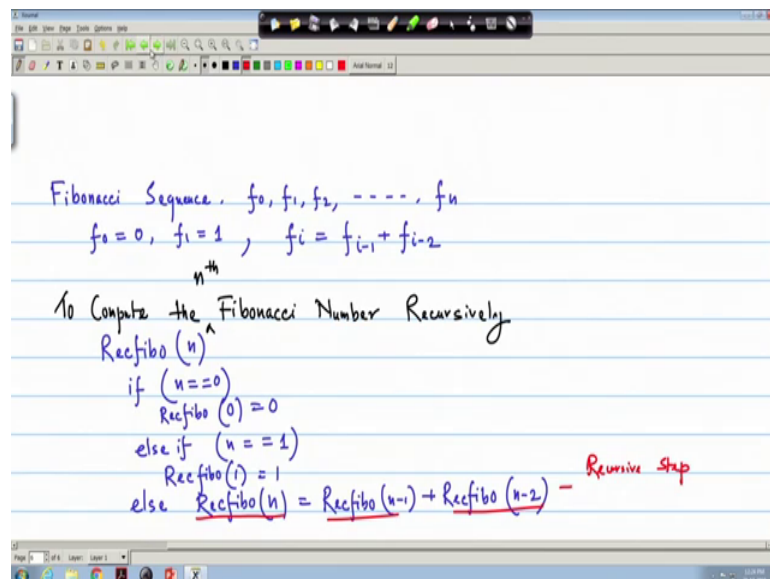 Journal
File Edit View Page Tools Options Help
Arial Normal 12
Fibonacci Sequence. f₀, f₁, f₂, -----, fₙ
f₀ = 0, f₁ = 1 , fᵢ = fᵢ₋₁ + fᵢ₋₂
nth
To Compute the ^ Fibonacci Number Recursively
Recfibo (n)
if (n==0)
Recfibo (0) = 0
else if (n == 1)
Recfibo (1) = 1
else Recfibo(n) = Recfibo (n-1) + Recfibo (n-2) — Recursive Step
Layer: Layer 1